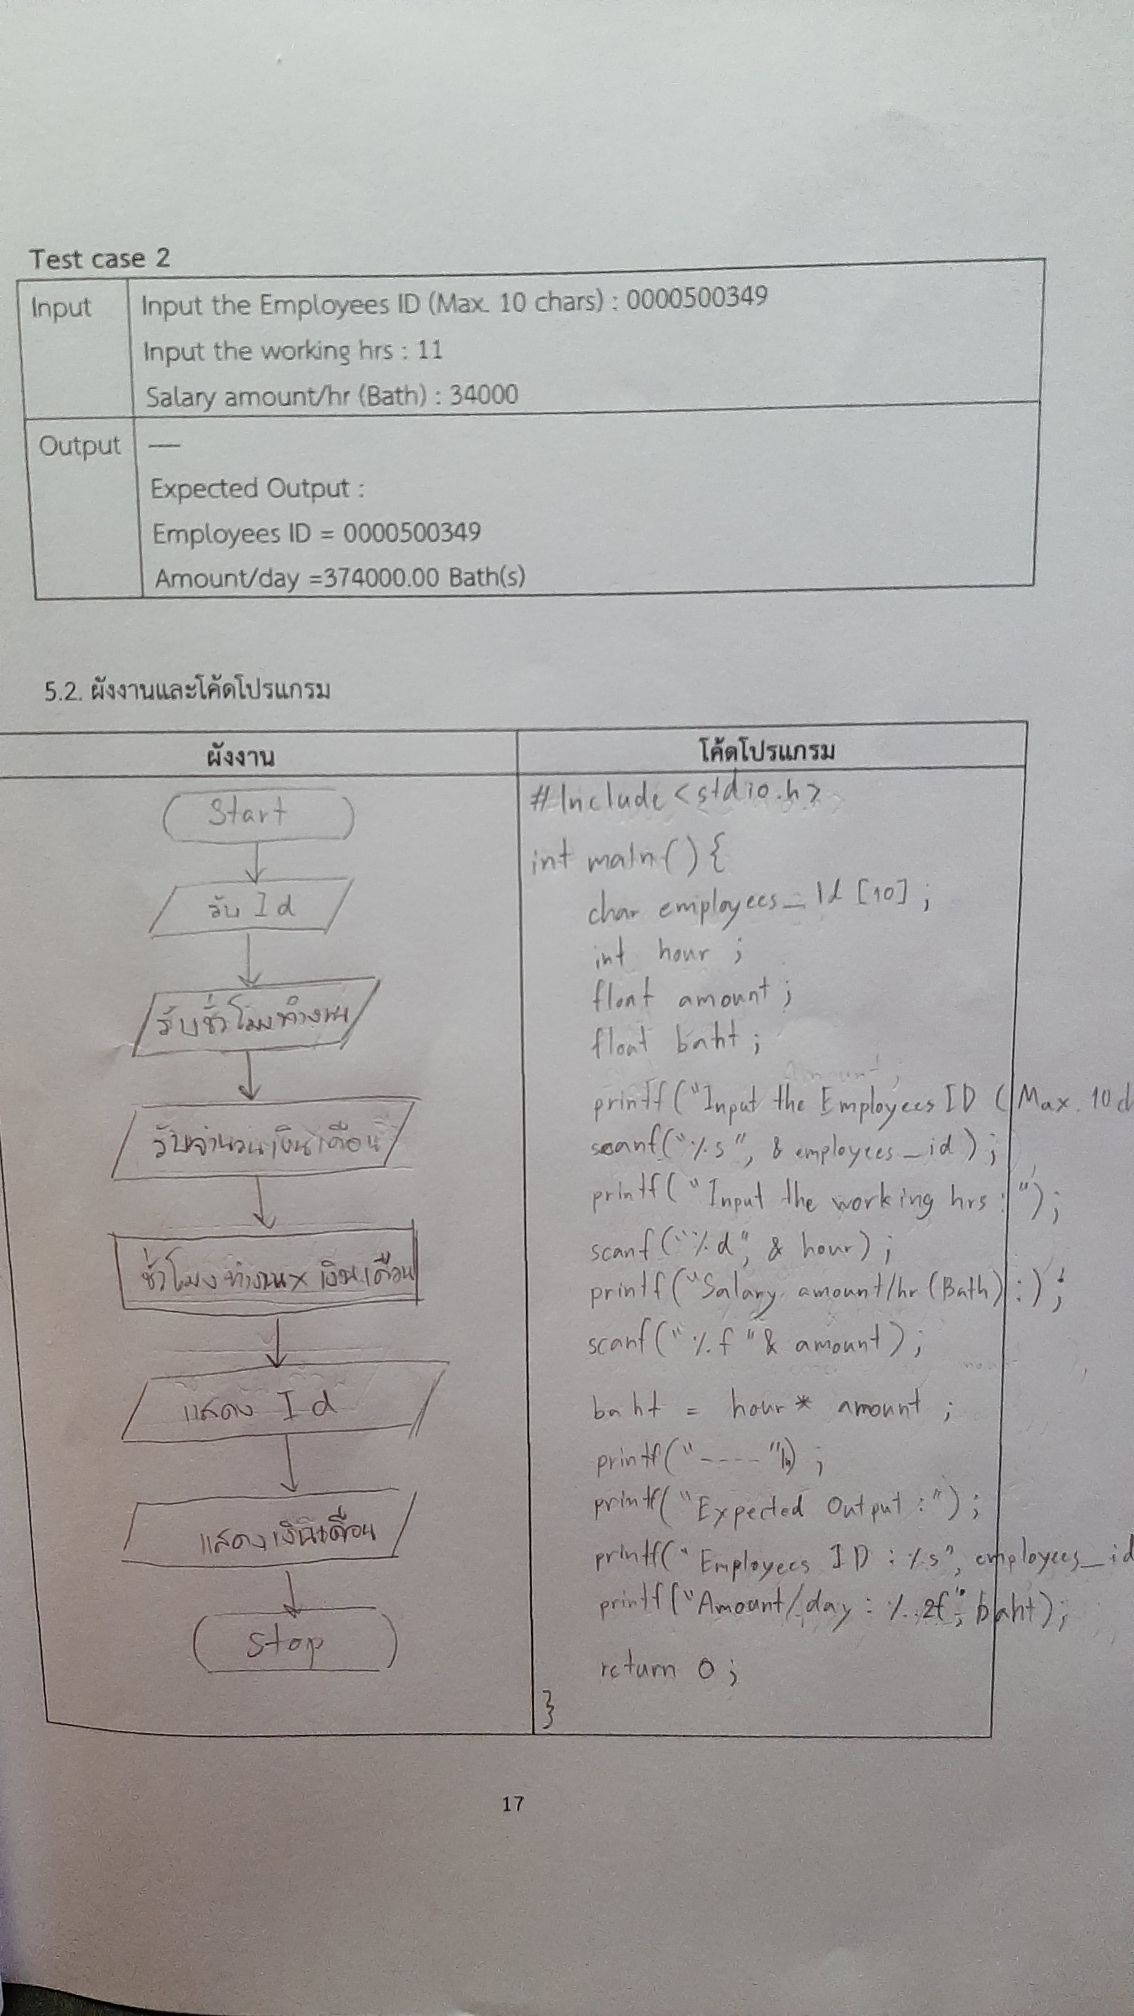 Test case 2
Input
Input the Employees ID (Max. 10 chars) : 0000500349
Input the working hrs : 11
Salary amount/hr (Bath) : 34000
Output
----
Expected Output :
Employees ID = 0000500349
Amount/day =374000.00 Bath(s)
5.2. ผังงานและโค้ดโปรแกรม
ผังงาน
Start
รับ Id
รับชั่วโมงทำงาน
รับจำนวนเงินเดือน
ชั่วโมงทำงาน x เงินเดือน
แสดง Id
แสดงเงินเดือน
Stop
โค้ดโปรแกรม
#Include <stdio.h>
int main() {
char employees_Id [10] ;
int hour ;
float amount ;
float baht ;
printf("Input the Employees ID ( Max. 10
scanf("%s", & employees_id ) ;
printf("Input the working hrs : ");
scanf("%d", & hour) ;
printf("Salary amount/hr (Bath) : ) ;
scanf("%f "& amount) ;
baht = hour * amount ;
printf("----"\n) ;
printf("Expected Output :") ;
printf("Employees ID : %s", employees_id
printf("Amount/day : %.2f", baht) ;
return 0 ;
}
17